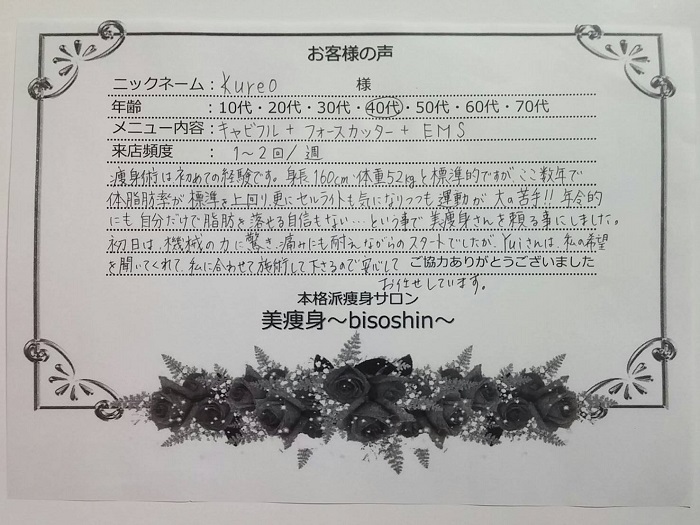 お客様の声
ニックネーム：Kureo 様
年齢 ：10代・20代・30代・40代・50代・60代・70代
メニュー内容：キャビフル + フォースカッター + EMS
来店頻度 ： 1〜2回/週
痩身術は初めての経験です。身長160cm・体重52kgと標準的ですが、ここ数年で
体脂肪率が標準を上回り、更にセルライトも気になりつつも運動が大の苦手!!年令的
にも自分だけで脂肪を落せる自信もない…という事で美痩身さんを頼る事にしました。
初日は、機械の力に驚き、痛みにも耐えながらのスタートでしたが、Yuiさんは、私の希望
を聞いてくれて、私に合わせて施術して下さるので安心して ご協力ありがとうございました
お任せしています。
本格派痩身サロン
美痩身〜bisoshin〜